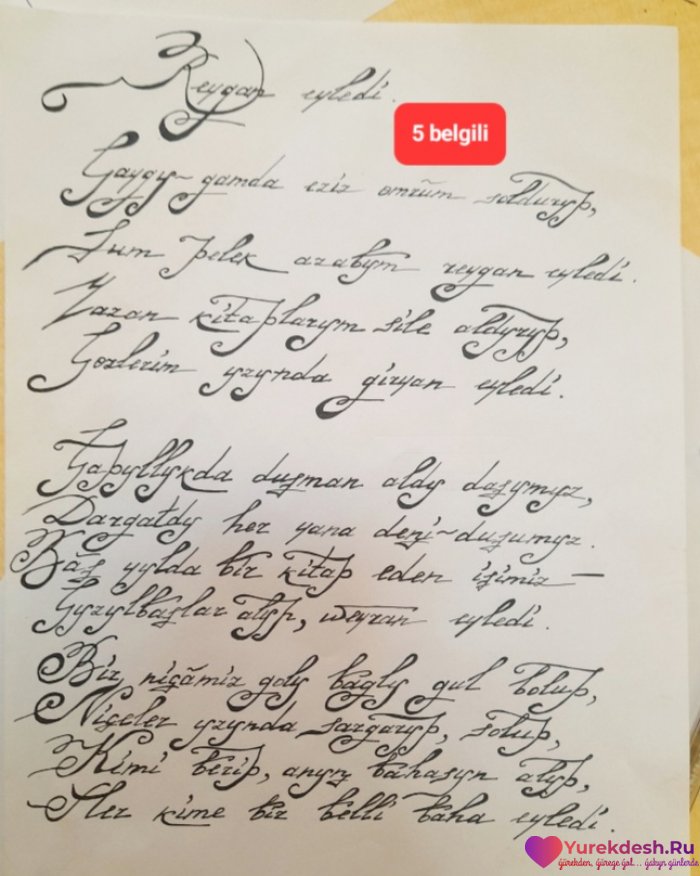 Reýgan eyledi.
5 belgili
Gaýgy-gamda eziz ömrüm solduryp,
Şum pelek azabym reýgan eyledi.
Ýazan kitaplarym sile aldyryp,
Gözlerim yzynda girýan eýledi.
Gapyllykda duşman aldy daşymyz,
Dargatdy her ýana deňi-duşumyz.
Bäş ýylda bir kitap eden işimiz—
Gyzylbaşlar alyp, weýran eýledi.
Bir niçämiz goly bagly gul bolup,
Niçeler yzynda sargaryp, solup,
Kimi berip, anyň bahasyn alyp,
Her kime bir belli baha eýledi.
Yurekdesh.Ru
ýürekden, ýürege ýol... ýakyn ýürekdeş